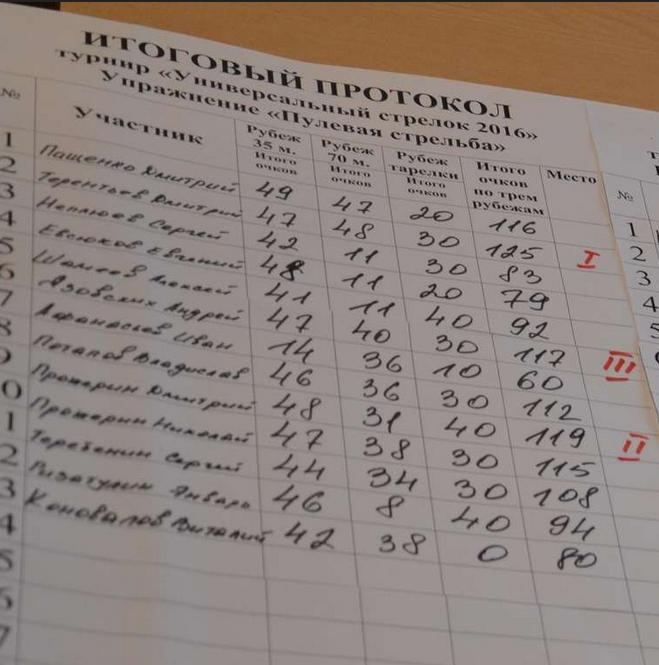 ИТОГОВЫЙ ПРОТОКОЛ
турнир «Универсальный стрелок 2016»
Упражнение «Пулевая стрельба»
№ Участник Рубеж 35 м. Итого очков Рубеж 70 м. Итого очков Рубеж тарелки Итого очков Итого очков по трем рубежам Место
1 Пащенко Дмитрий 49 47 20 116
2 Терентьев Дмитрий 47 48 30 125 I
3 Неплюев Сергей 42 11 30 83
4 Евсюков Евгений 48 11 20 79
5 Алексей 41 11 40 92
6 Азовских Андрей 47 40 30 117 III
7 Афанасьев Иван 14 36 10 60
8 Потапов Владислав 46 36 30 112
9 Прожерин Дмитрий 48 31 40 119 II
0 Прожерин Николай 47 38 30 115
1 Теребенин Сергей 44 34 30 108
2 Январь 46 8 40 94
3 Коновалов Виталий 42 38 0 80
4
5
6
7
№
1
2
3
4
5